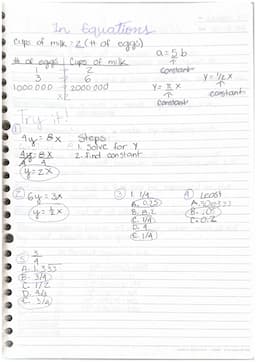 In Equations
Cups of milk = 2(# of eggs)
# of eggs | Cups of milk
1 2
3 6
1000 000 2000 000
x2
a = 5 b
↑
constant
y = 1/2 x
↑
constant
y = x
↑
constant
Try it!
① 4y = 8x Steps
1. Solve for Y
4y = 8x 2. find constant
4 4
y = 2x
② 6y = 3x
y = 1/2x
③ 1 1/4
A. 0.25
B. 8.2
D. 4
E. 1/4
④ Least
B. .05
C. 0.2
⑤ 3
4
A. 1.333
B. 3/4
C. 1/2
E. 3/4